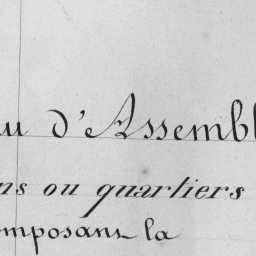 au d'Assembl
ns ou quartiers
omposans la